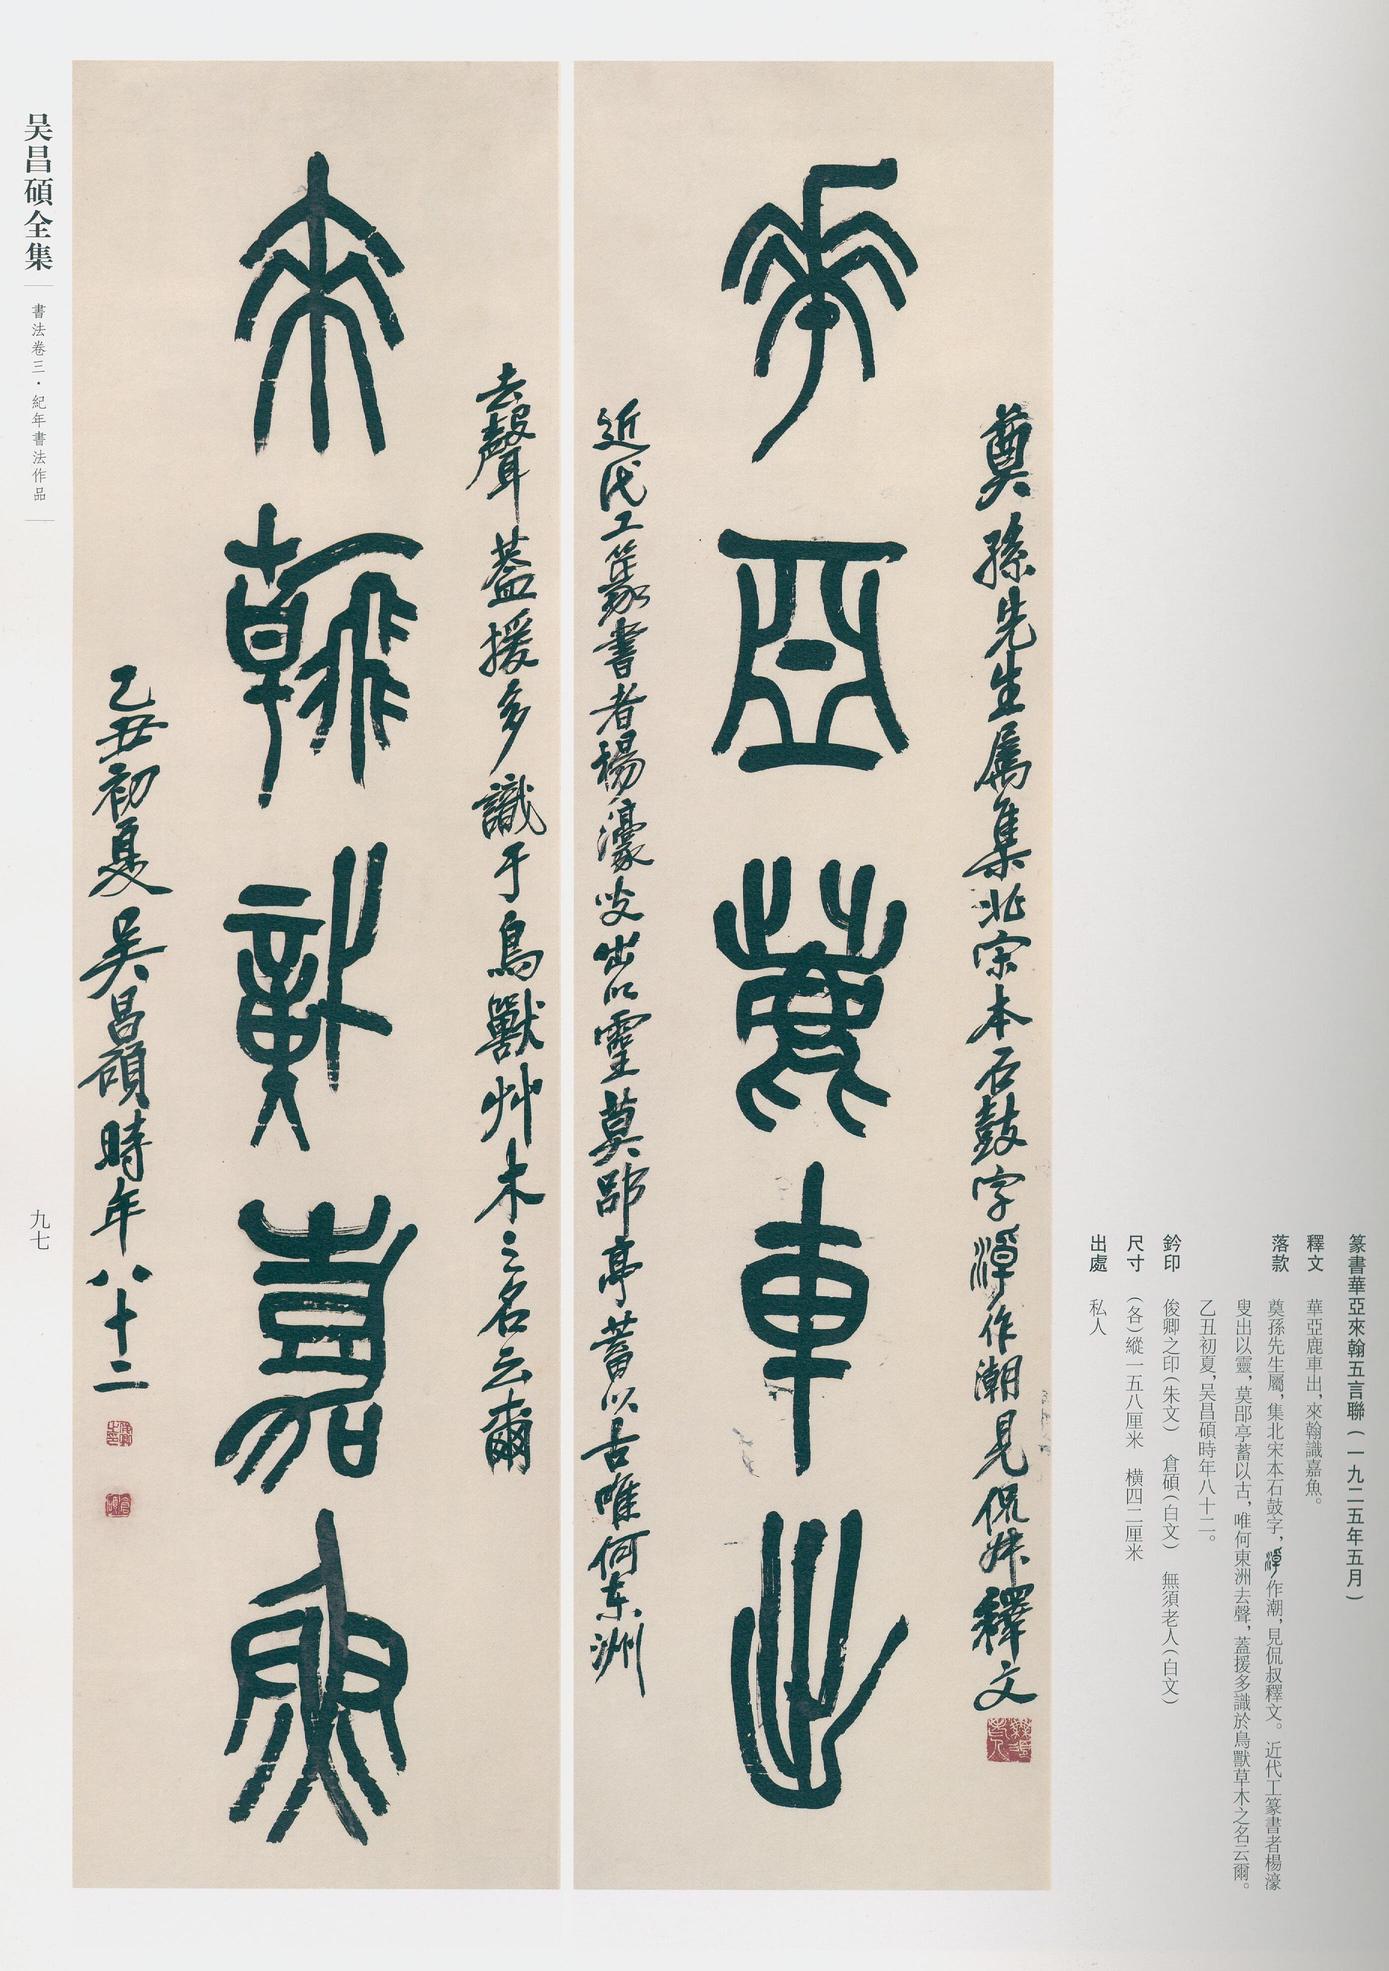 篆書華亞來翰五言聯（一九二五年五月）
釋文　華亞鹿車出，來翰識嘉魚。
落款　奠孫先生屬，集北宋本石鼓字，淖作潮，見侃叔釋文。近代工篆書者楊濠
叟出以靈，莫郘亭蓄以古，唯何東洲去聲，蓋援多識於鳥獸草木之名云爾。
乙丑初夏，吴昌碩時年八十二。
鈐印　俊卿之印（朱文）　倉碩（白文）　無須老人（白文）
尺寸　（各）縱一五八厘米　橫四二厘米
出處　私人
奠孫先生属集北宋本石鼓字淖作潮見侃叔釋文
華亞鹿車出
近代工篆書者楊濠叟出以靈莫郘亭蓄以古唯何东洲
去聲蓋援多識于鳥獸艸木之名云爾
來翰識嘉魚
乙丑初夏吴昌碩時年八十二
吴昌碩全集
書法卷三·紀年書法作品
九七